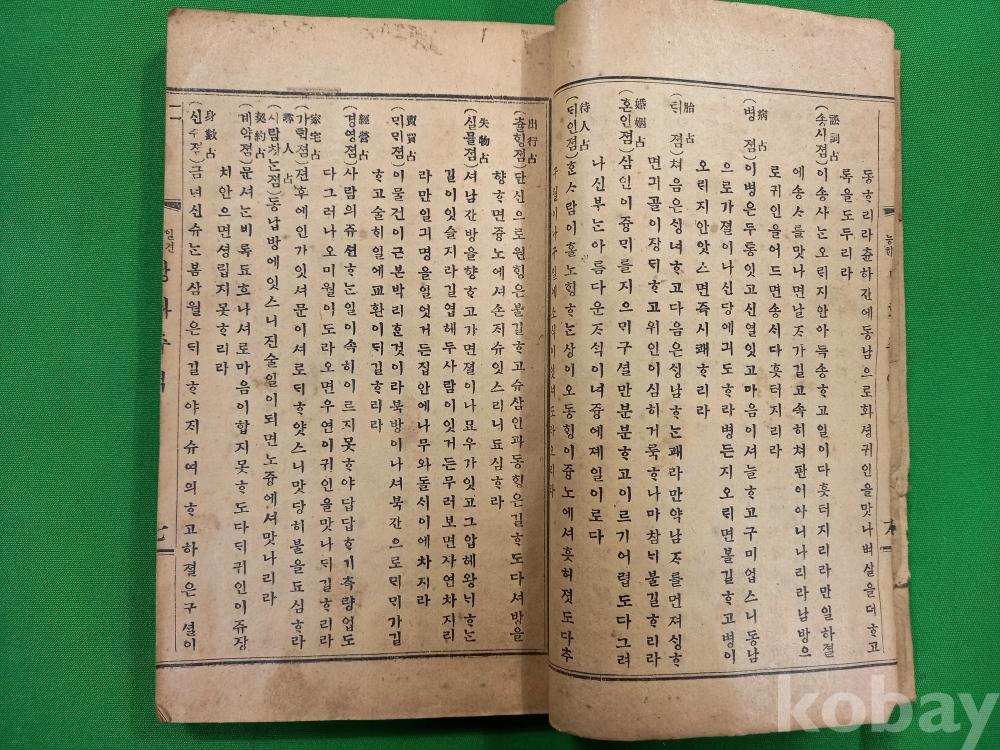 동ᄒᆞ리라츈하간에동남으로화셩귀인을맛나벼살을더ᄒᆞ고
록을도두리라
訟詞占
(송ᄉᆞ졈)이송사ᄂᆞᆫ오ᄅᆡ지안아득송ᄒᆞ고일이다흣터지리라만일하졀
에송ᄉᆞ를맛나면날ᄌᆞ가길고속히쳐판이아니나리라남방으
로귀인을어드면송시다흣터지리라
病占
(병졈)이병은두통잇고신열잇고마음이셔늘ᄒᆞ고구미업스니동남
으로가졀이나신당에긔도ᄒᆞ라병든지오ᄅᆡ면불길ᄒᆞ고병이
오ᄅᆡ지안앗스면즉시쾌ᄒᆞ리라
胎占
(ᄐᆡ졈)쳐음은ᄉᆡᆼ녀ᄒᆞ고다음은ᄉᆡᆼ남ᄒᆞᄂᆞᆫ괘라만약남ᄌᆞ를먼져ᄉᆡᆼᄒᆞ
면긔골이장ᄃᆡᄒᆞ고위인이심히거룩ᄒᆞ나마참ᄂᆡ불길ᄒᆞ리라
婚姻占
(혼인졈)삼인이즁ᄆᆡ를지으ᄆᆡ구셜만분분ᄒᆞ고이르기어렵도다그러
나신부ᄂᆞᆫ아름다운ᄌᆞ식이녀즁에졔일이로다
待人占
(ᄃᆡ인졈)ᄒᆞᆫᄉᆞ람이홀노ᄒᆡᆼᄒᆞᄂᆞᆫ상이오동ᄒᆡᆼ이즁노에셔흣허졋도다추
出行占
(츌ᄒᆡᆼ졈)단신으로원ᄒᆡᆼ은불길ᄒᆞ고슈삼인과동ᄒᆡᆼ은길ᄒᆞ도다셔방을
향ᄒᆞ면즁노에셔손ᄌᆡ슈잇스리니됴심ᄒᆞ라
失物占
(실물졈)셔남간방을향ᄒᆞ고가면졀이나묘우가잇고그압헤왕ᄂᆡᄒᆞᄂᆞᆫ
길이잇슬지라길엽헤두사람이잇거든무러보면자연차지리
라만일긔명을일엇거든집안에나무와돌ᄉᆞ이에차지라
賣買占
(ᄆᆡᄆᆡ졈)이물건이근본박리ᄒᆞᆫ것이라북방이나셔북간으로ᄆᆡᄆᆡ가길
ᄒᆞ고술ᄒᆡ일에교환이ᄃᆡ길ᄒᆞ리라
經營占
(경영졈)사람의쥬션ᄒᆞᄂᆞᆫ일이속히이르지못ᄒᆞ야답답ᄒᆞ기측량업도
다그러나오미월이도라오면우연이귀인을맛나ᄃᆡ길ᄒᆞ리라
家宅占
(가ᄐᆡᆨ졈)젼후에인가잇셔문이셔로ᄃᆡᄒᆞ얏스니맛당히불을됴심ᄒᆞ라
尋人占
(사람찻ᄂᆞᆫ졈)동남방에잇스니진술일이되면노즁에셔맛나리라
契約占
(계약졈)문셔ᄂᆞᆫ비록됴흐나셔로마음이합지못ᄒᆞ도다귀인이쥬장
치안으면셩립지못ᄒᆞ리라
身數占
(신슈졈)금년신슈ᄂᆞᆫ봄삼월은ᄃᆡ길ᄒᆞ야ᄌᆡ슈여의ᄒᆞ고하졀은구셜이
七